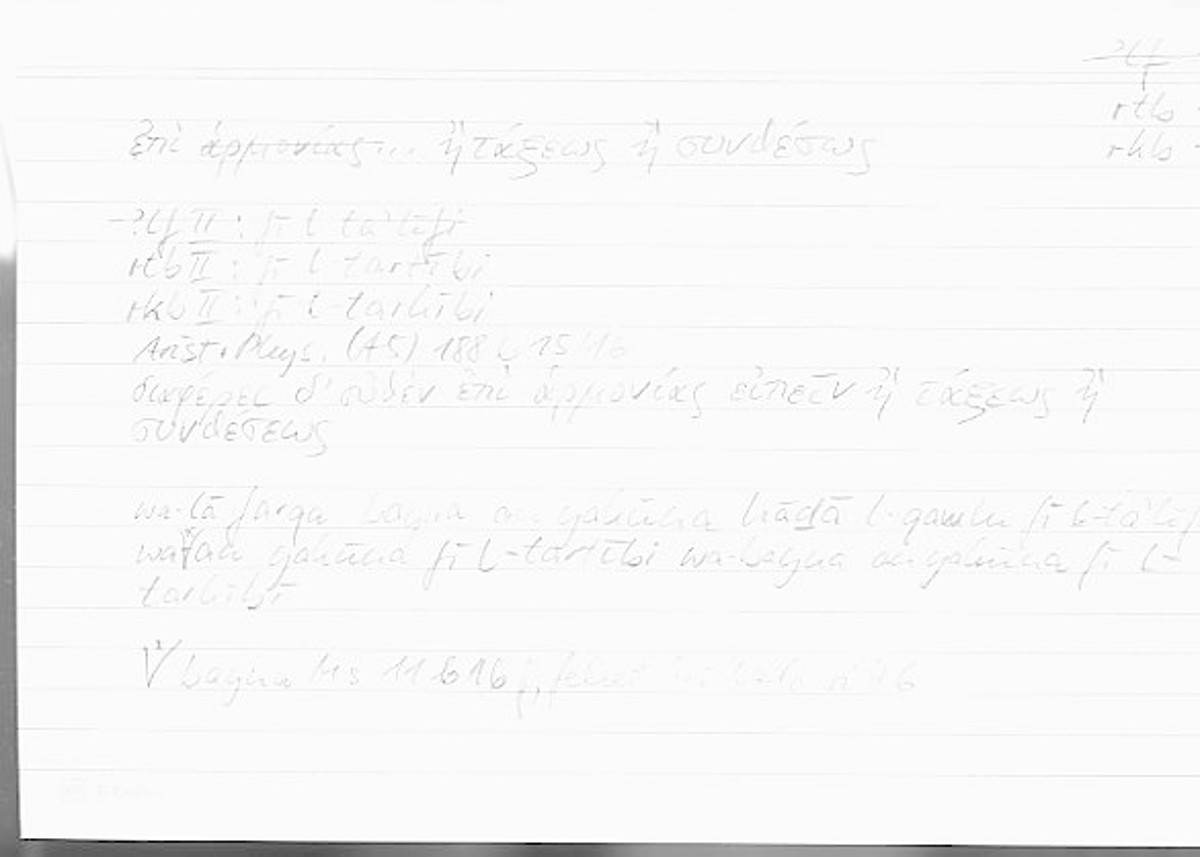 ʾlf
rtb
rkb
ἐπὶ ἁρμονίας... ἢ τάξεως ἢ συνθέσεως
ʾlf II : fī l-taʾlīfi
rtb II : fī l-tartībi
rkb II : fī l-tarkībi
Arist. Phys. (A5) 188 b 15/16
διαφέρει δ' οὐθὲν ἐπὶ ἁρμονίας εἰπεῖν ἢ τάξεως ἢ
συνθέσεως
wa-lā farqa bayna an yakūna hāḏā l-qawlu fī l-taʾlīf
wa an yakūna fī l-tartībi wa-bayna an yakūna fī l-
tarkībi
bayna Hs 11 b 16